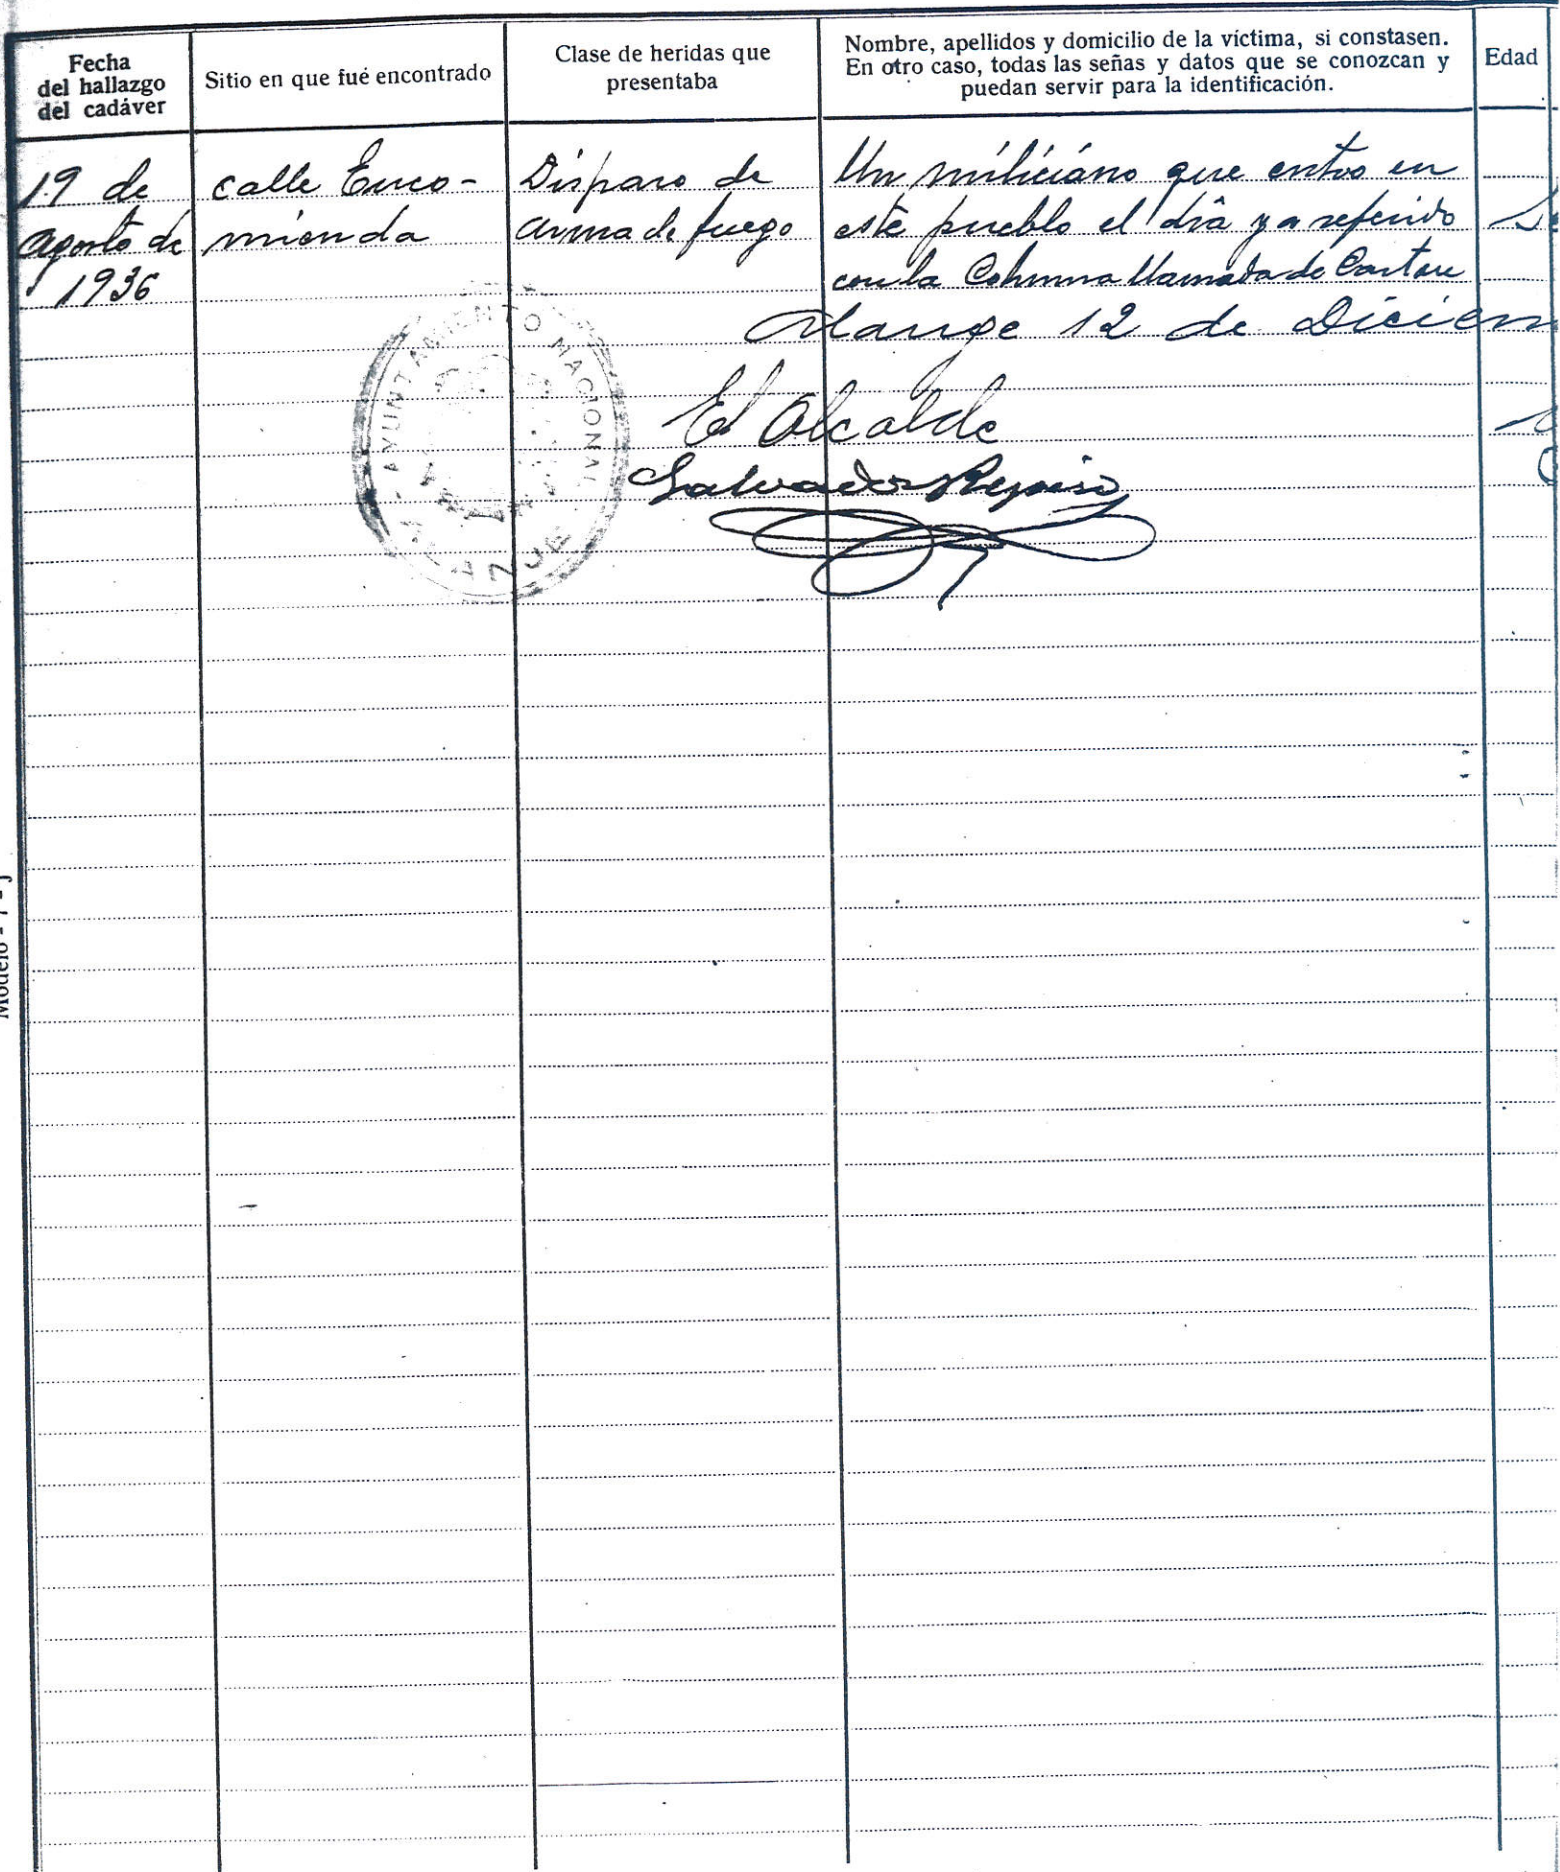 Fecha
del hallazgo
del cadáver
Sitio en que fué encontrado
Clase de heridas que
presentaba
Nombre, apellidos y domicilio de la víctima, si constasen.
En otro caso, todas las señas y datos que se conozcan y
puedan servir para la identificación.
Edad
19 de
agosto de
1936
calle Enco-
mienda
Disparo de
arma de fuego
Un miliciano que entro en
este pueblo el dia ya referido
con la Columna llamada de
Alange 12 de Diciem
El Alcalde
Salvador
AYUNTAMIENTO NACIONAL
Modelo -